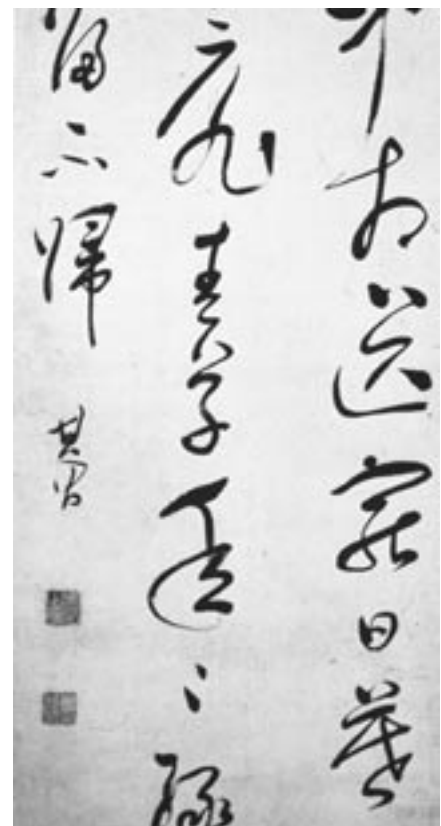 中相送罷日暮
扉春草年〻綠
留不歸
其昌